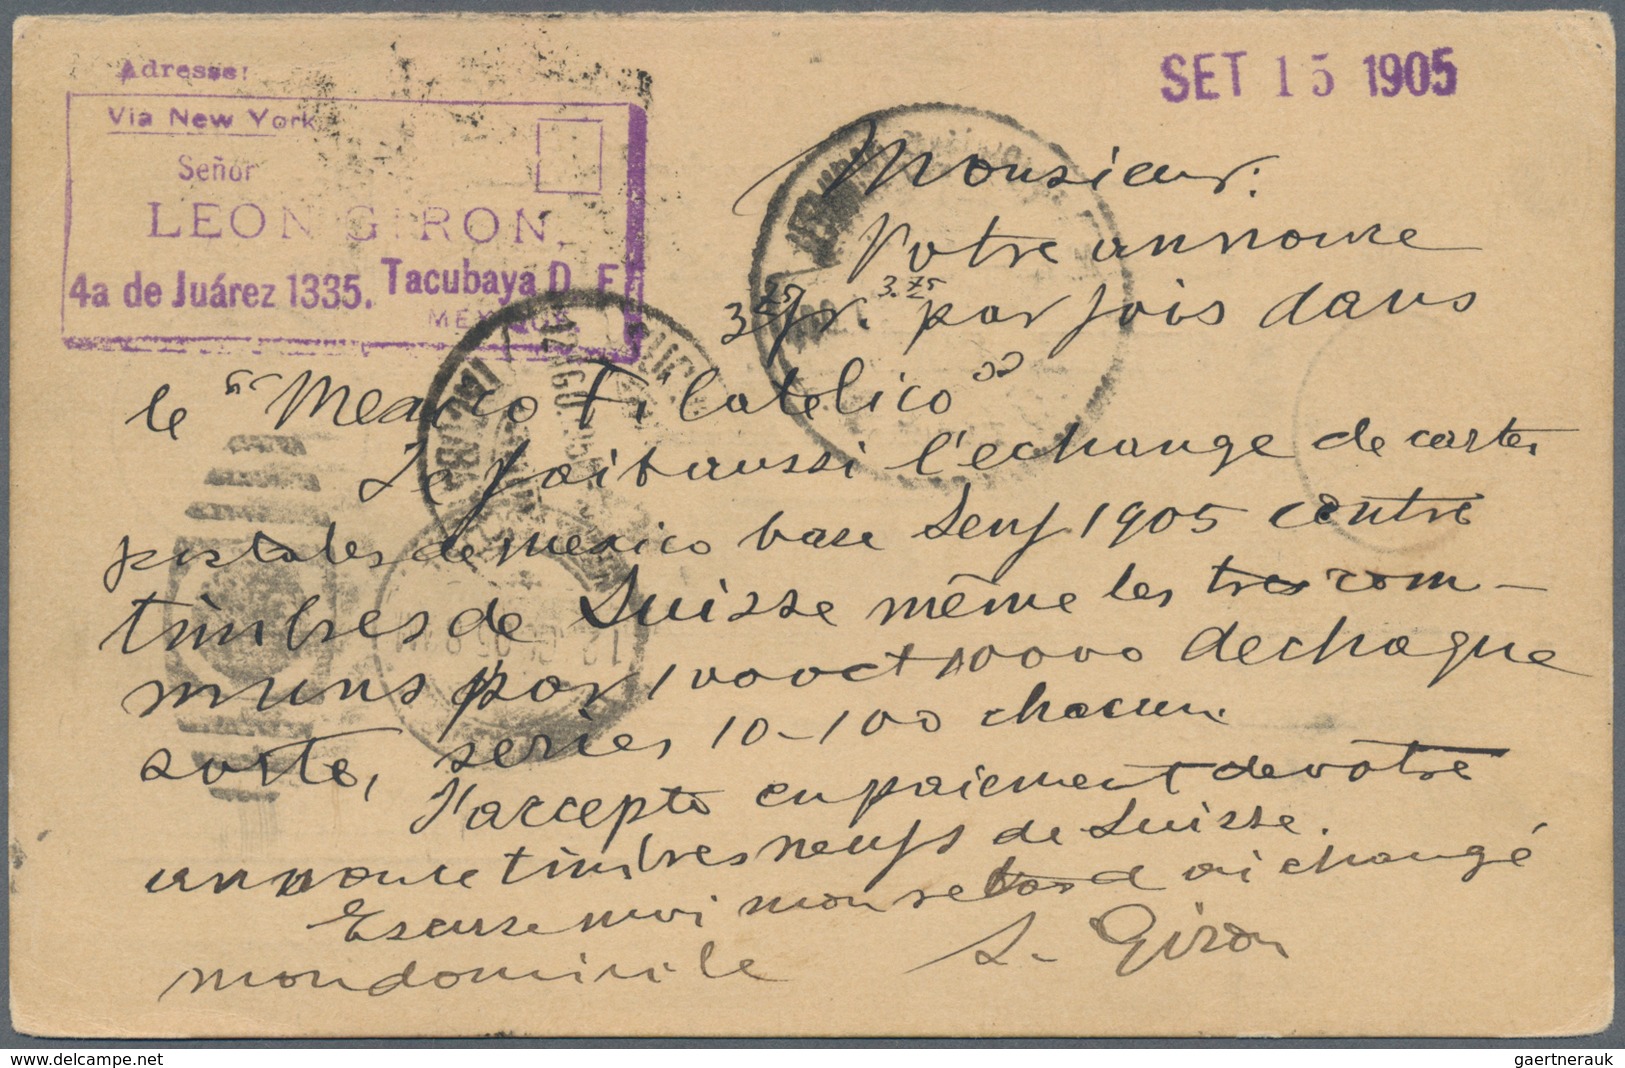 Adresse:
Via New York
Señor
LEON GIRON,
4a de Juárez 1335. Tacubaya D. F.
MEXIQUE.
SET 15 1905
Monsieur:
Votre annonce
3 25 fr. 3.75 par fois dans
le "Mexico Filatelico"
Je fait aussi l'echange de cartes
postales de mexico base Senf 1905 contre
timbres de Suisse même les tres com-
muns par 1000 et 10000 de chaque
sorte, series 10-100 chacun.
J'accepte en paiement de votre
annonce timbres neufs de Suisse.
Excuse moi mon retard ai changé
mon domicile L. Giron
gaertnerauk